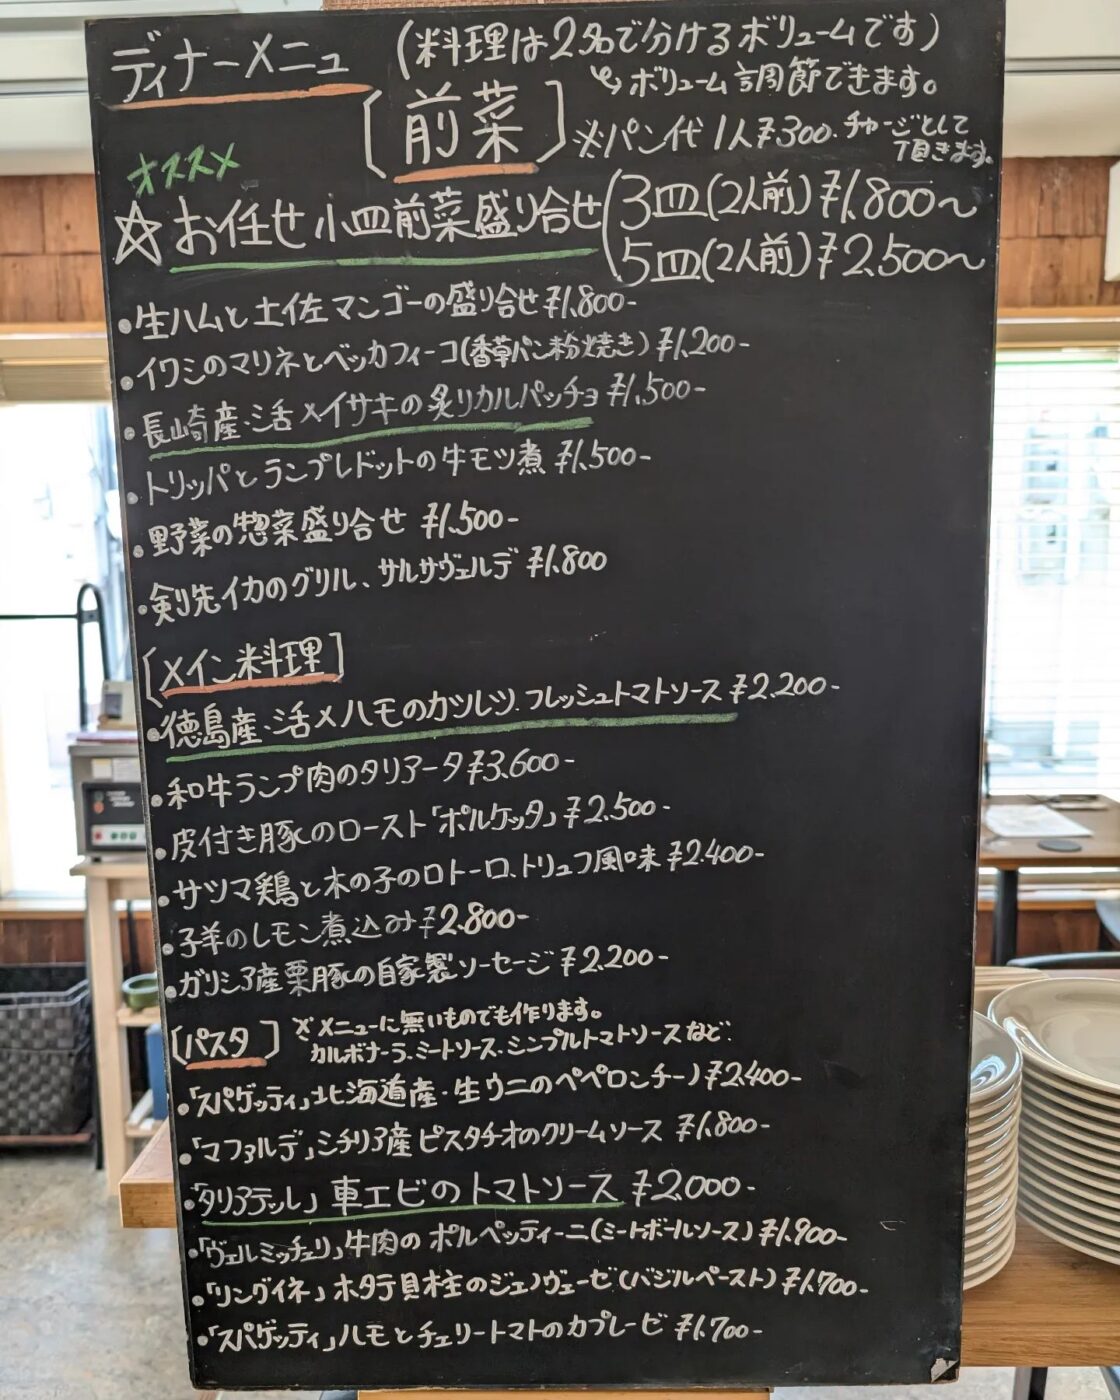 ディナーメニュー (料理は2名で分けるボリュームです)
↳ボリューム調節できます。
[前菜] ※パン代1人¥300.チャージとして頂きます。
オススメ
☆お任せ小皿前菜盛り合せ (3皿(2人前)¥1.800〜
(5皿(2人前)¥2.500〜
・生ハムと土佐マンゴーの盛り合せ ¥1.800-
・イワシのマリネとベッカフィーコ(香草パン粉焼き) ¥1.200-
・長崎産・活〆イサキの炙りカルパッチョ ¥1.500-
・トリッパとランプレドットの牛モツ煮 ¥1.500-
・野菜の惣菜盛り合せ ¥1.500-
・剣先イカのグリル、サルサヴェルデ ¥1.800
[メイン料理]
・徳島産・活〆ハモのカツレツ、フレッシュトマトソース ¥2.200-
・和牛ランプ肉のタリアータ ¥3.600-
・皮付き豚のロースト「ポルケッタ」 ¥2.500-
・サツマ鶏と木の子のロトーロ、トリュフ風味 ¥2.400-
・子羊のレモン煮込み ¥2.800-
・ガリシア産栗豚の自家製ソーセージ ¥2.200-
[パスタ] ※メニューに無いものでも作ります。
カルボナーラ、ミートソース、シンプルトマトソースなど、
・「スパゲッティ」北海道産・生ウニのペペロンチーノ ¥2.400-
・「マファルデ」シチリア産ピスタチオのクリームソース ¥1.800-
・「タリアテッレ」車エビのトマトソース ¥2.000-
・「ヴェルミッチェリ」牛肉のポルペッティーニ(ミートボールソース) ¥1.900-
・「リングイネ」ホタテ貝柱のジェノヴェーゼ(バジルペースト) ¥1.700-
・「スパゲッティ」ハモとチェリートマトのカプレーゼ ¥1.700-